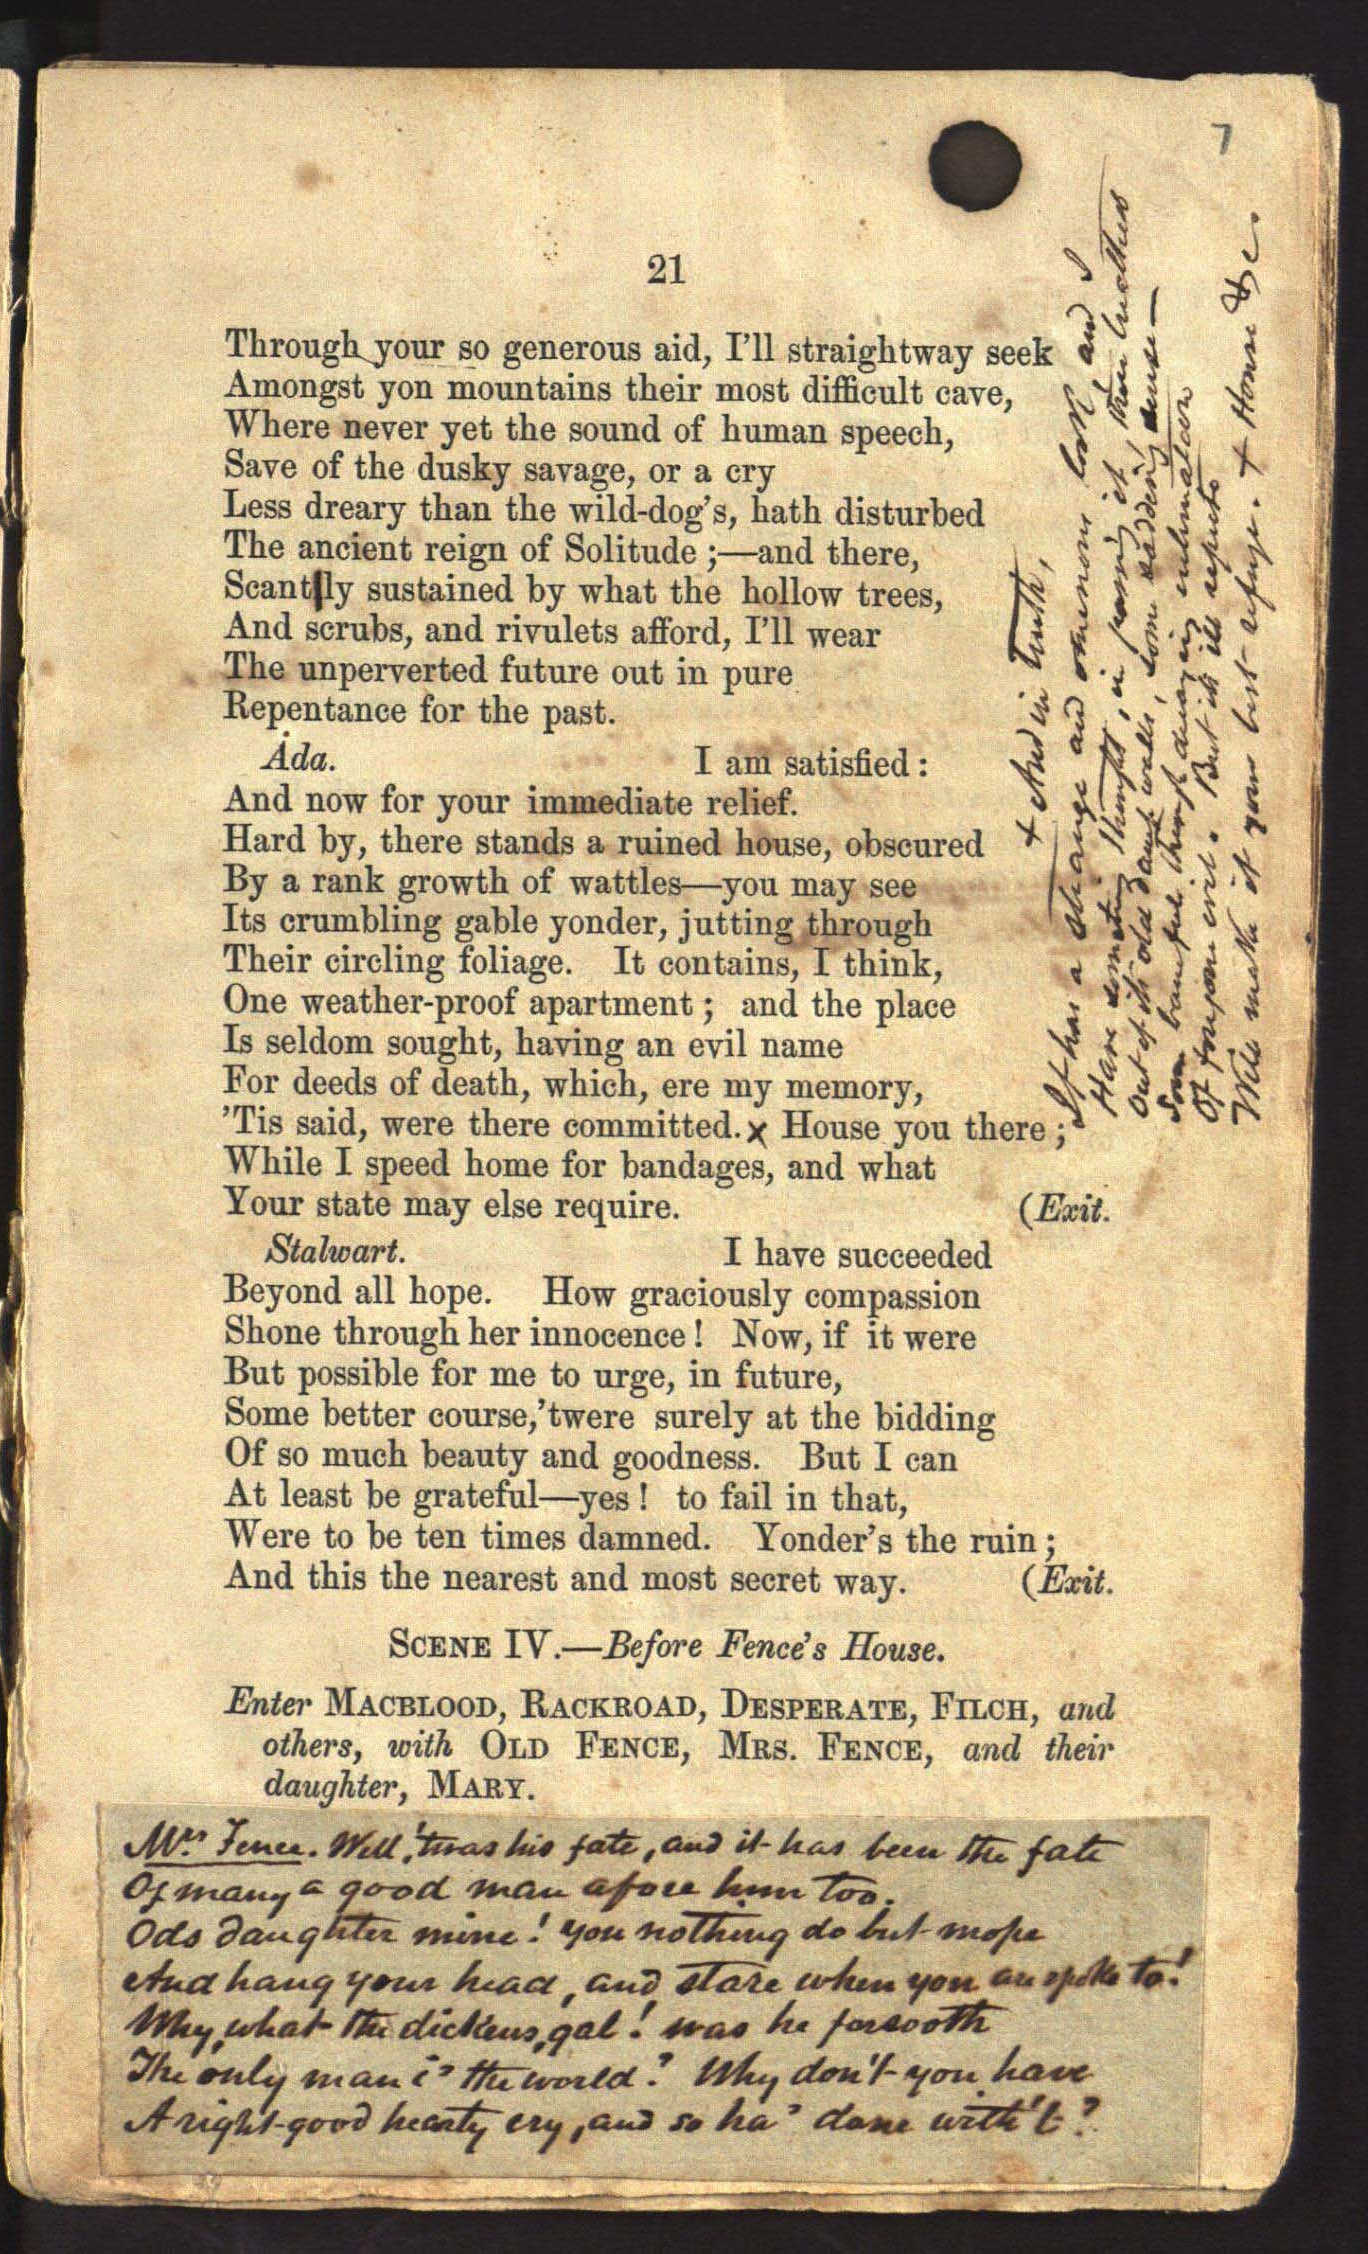 7
21
Through your so generous aid, I'll straightway seek
Amongst yon mountains their most difficult cave,
Where never yet the sound of human speech,
Save of the dusky savage, or a cry
Less dreary than the wild-dog's, hath disturbed
The ancient reign of Solitude ;—and there,
Scantily sustained by what the hollow trees,
And scrubs, and rivulets afford, I'll wear
The unperverted future out in pure
Repentance for the past.
Ada. I am satisfied :
And now for your immediate relief.
Hard by, there stands a ruined house, obscured
By a rank growth of wattles—you may see
Its crumbling gable yonder, jutting through
Their circling foliage. It contains, I think,
One weather-proof apartment ; and the place
Is seldom sought, having an evil name
For deeds of death, which, ere my memory,
'Tis said, were there committed. x House you there ;
While I speed home for bandages, and what
Your state may else require. (Exit.
Stalwart. I have succeeded
Beyond all hope. How graciously compassion
Shone through her innocence ! Now, if it were
But possible for me to urge, in future,
Some better course,'twere surely at the bidding
Of so much beauty and goodness. But I can
At least be grateful—yes ! to fail in that,
Were to be ten times damned. Yonder's the ruin ;
And this the nearest and most secret way. (Exit.
SCENE IV.—Before Fence's House.
Enter MACBLOOD, RACKROAD, DESPERATE, FILCH, and
others, with OLD FENCE, MRS. FENCE, and their
daughter, MARY.
Mrs Fence. Well, 'twas his fate, and it has been the fate
Of many a good man afore him too.
Ods daughter mine! you nothing do but mope
And hang your head, and stare when you are spoke to!
Why, what the dickens, gal! was he forsooth
The only man i' the world? Why don't you have
A right-good hearty cry, and so ha' done with't?
+ And in truth,
It has a strange and ominous look and I
Have sometimes thought, in passing it, then brothers
Out of its old dank walls, some sadding sense—
Some baneful
Of foregone evil. But its ill repute
Will make it your best refuge. + House &c.